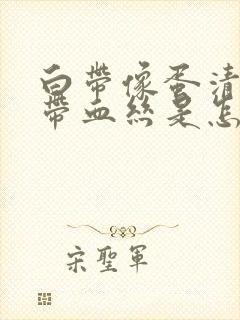 白帶像蛋清
帶血絲是怎
宋聖軍